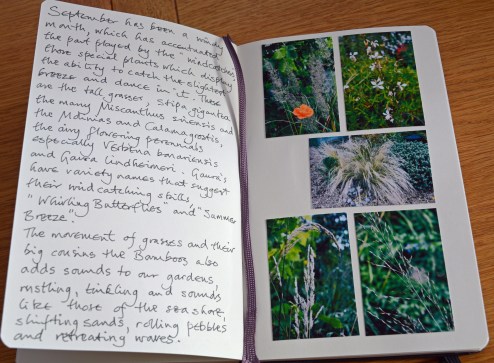 September has been a windy
month, which has accentuated
the part played by the "windcatchers"
those special plants which display
the ability to catch the slightest
breeze and dance in it. These
are the tall grasses, Stipa gigantea
the many Miscanthus sinensis and
the Molinias and Calamagrostis,
the airy flowering perennials
especially Verbena bonariensis
and Gaura lindheimeri. Gaura's
have variety names that suggest
their wind catching skills,
"Whirling Butterflies" and "Summer
Breeze".
The movement of grasses and their
big cousins the Bamboos also
adds sounds to our gardens,
rustling, tinkling and sounds
like those of the sea shore,
shifting sands, rolling pebbles
and retreating waves.